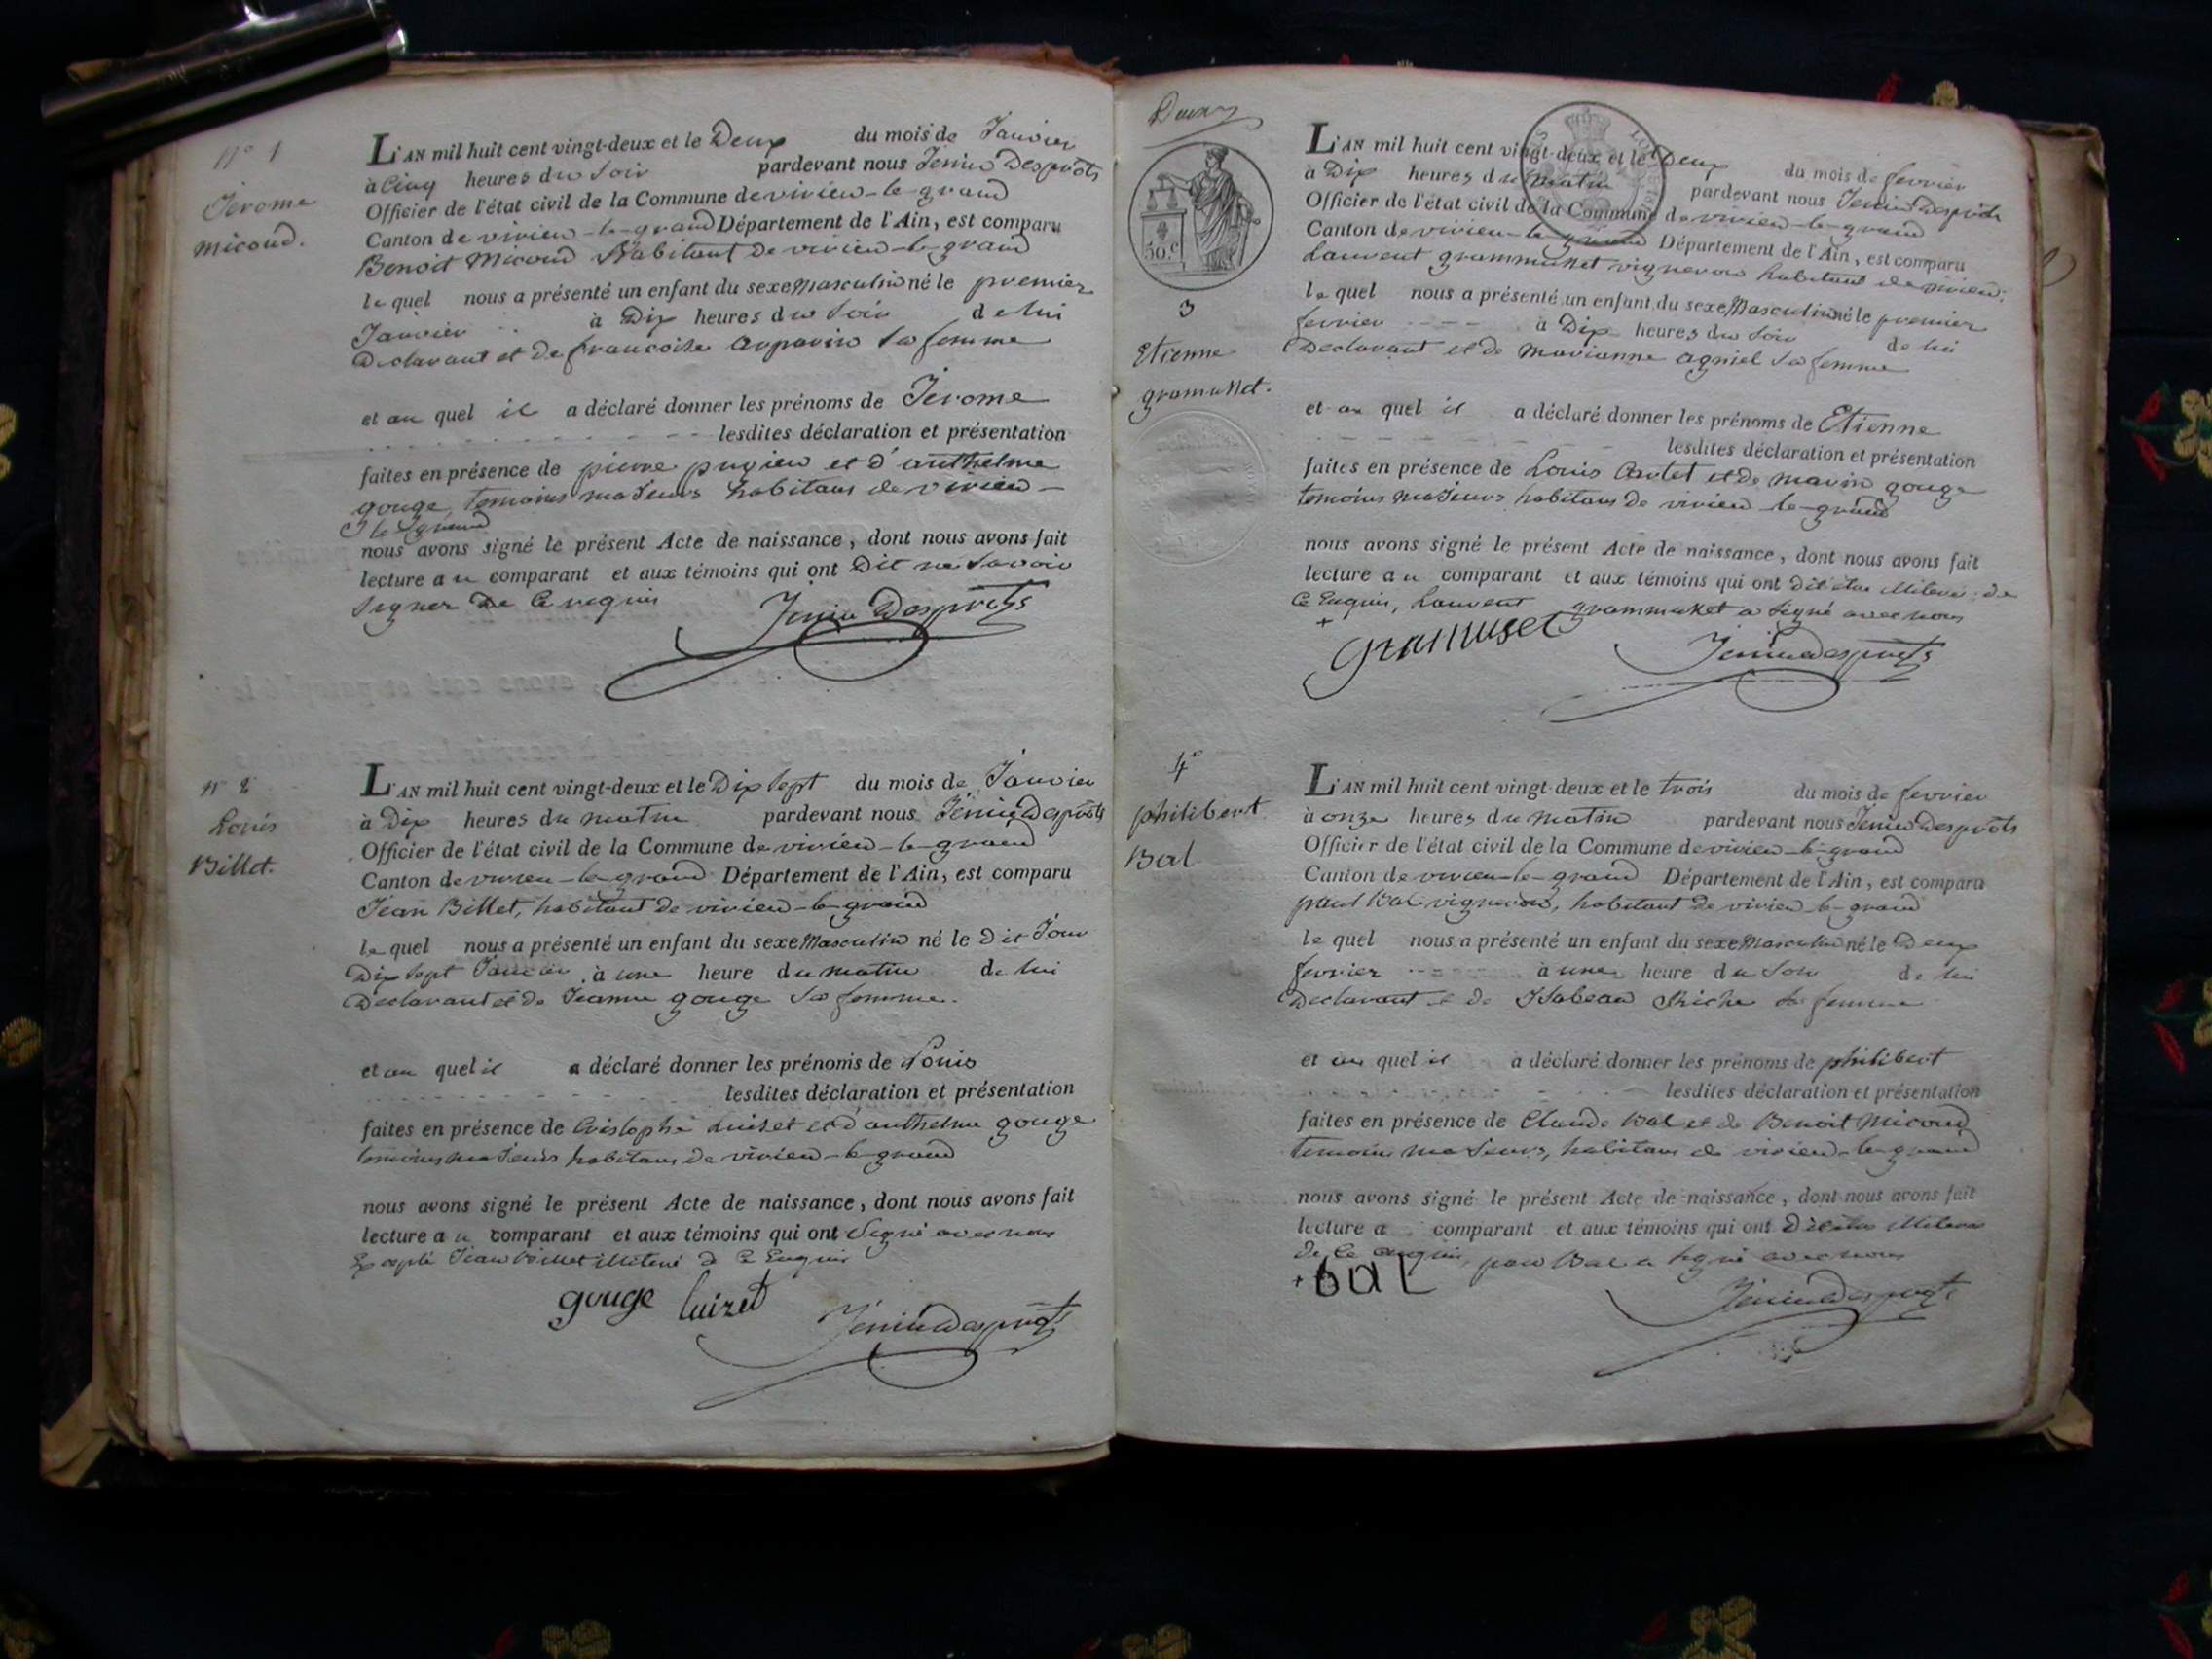 N° 1
Jerome
micoud.
L'AN mil huit cent vingt-deux et le Deux du mois de Janvier
à Cinq heures du Soir pardevant nous Jenin Desprôts
Officier de l'état civil de la Commune de virieu-le-grand
Canton de virieu-le-grand Département de l'Ain, est comparu
Benoit Micoud habitant de virieu-le-grand
le quel nous a présenté un enfant du sexe Masculin né le premier
Janvier à Dix heures du Soir de lui
Declarant et de francoise Arparin Sa femme
et au quel il a déclaré donner les prénoms de Jerome
lesdites déclaration et présentation
faites en présence de pierre pugieu et d'anthelme
gouge, temoins majeurs habitans de virieu-
le grand
nous avons signé le présent Acte de naissance, dont nous avons fait
lecture au comparant et aux témoins qui ont Dit ne Savoir
Signer De Ce requis
Jenin Desprots
n° 2
Louis
Billet.
L'AN mil huit cent vingt-deux et le Dix Sept du mois de Janvier
à Dix heures du matin pardevant nous Jenin Desprôts
Officier de l'état civil de la Commune de virieu-le-grand
Canton de virieu-le-grand Département de l'Ain, est comparu
Jean Billet, habitant de virieu-le-grand
le quel nous a présenté un enfant du sexe Masculin né le Dit Jour
Dix Sept Janvier à une heure du matin de lui
Declarant et de Jeanne gouge Sa femme.
et au quel il a déclaré donner les prénoms de Louis
lesdites déclaration et présentation
faites en présence de Cristophe Luizet et d'anthelme gouge
temoins majeurs habitans de virieu-le-grand
nous avons signé le présent Acte de naissance, dont nous avons fait
lecture au comparant et aux témoins qui ont Signé avec nous
Jean Billet illiteré de Ce Enquis
gouge luizet Jenin Desprots
50.C
3
Etienne
gramuset.
L'AN mil huit cent vingt-deux et le Deux du mois de fevrier
à Dix heures du matin pardevant nous Jenin Desprôts
Officier de l'état civil de la Commune de virieu-le-grand
Canton de virieu-le-grand Département de l'Ain, est comparu
Laurent grammuset vigneron habitant de virieu.
le quel nous a présenté un enfant du sexe Masculin né le premier
fevrier à Dix heures du Soir de lui
Declarant et de marianne agniel Sa femme
et au quel il a déclaré donner les prénoms de Etienne
lesdites déclaration et présentation
faites en présence de Louis Cartet et de marin gouge
temoins majeurs habitans de virieu-le-grand
nous avons signé le présent Acte de naissance, dont nous avons fait
lecture au comparant et aux témoins qui ont Dit être illiterés de
Ce Enquis, Laurent grammuset a Signé avec nous
+ gramuset Jenin Desprots
4e
philibert
Bal
L'AN mil huit cent vingt-deux et le trois du mois de fevrier
à onze heures du matin pardevant nous Jenin Desprôts
Officier de l'état civil de la Commune de virieu-le-grand
Canton de virieu-le-grand Département de l'Ain, est comparu
paul Bal vigneron, habitant de virieu-le-grand
le quel nous a présenté un enfant du sexe Masculin né le Deux
fevrier à une heure du Soir de lui
Declarant et de Isabeau Riche Sa femme
et au quel il a déclaré donner les prénoms de philibert
lesdites déclaration et présentation
faites en présence de Claude Bal et de Benoit Micoud
temoins majeurs, habitans de virieu-le-grand
nous avons signé le présent Acte de naissance, dont nous avons fait
lecture a comparant et aux témoins qui ont Dit être illiterés
de Ce enquis, paul Bal a Signé avec nous
+ bal Jenin Desprots